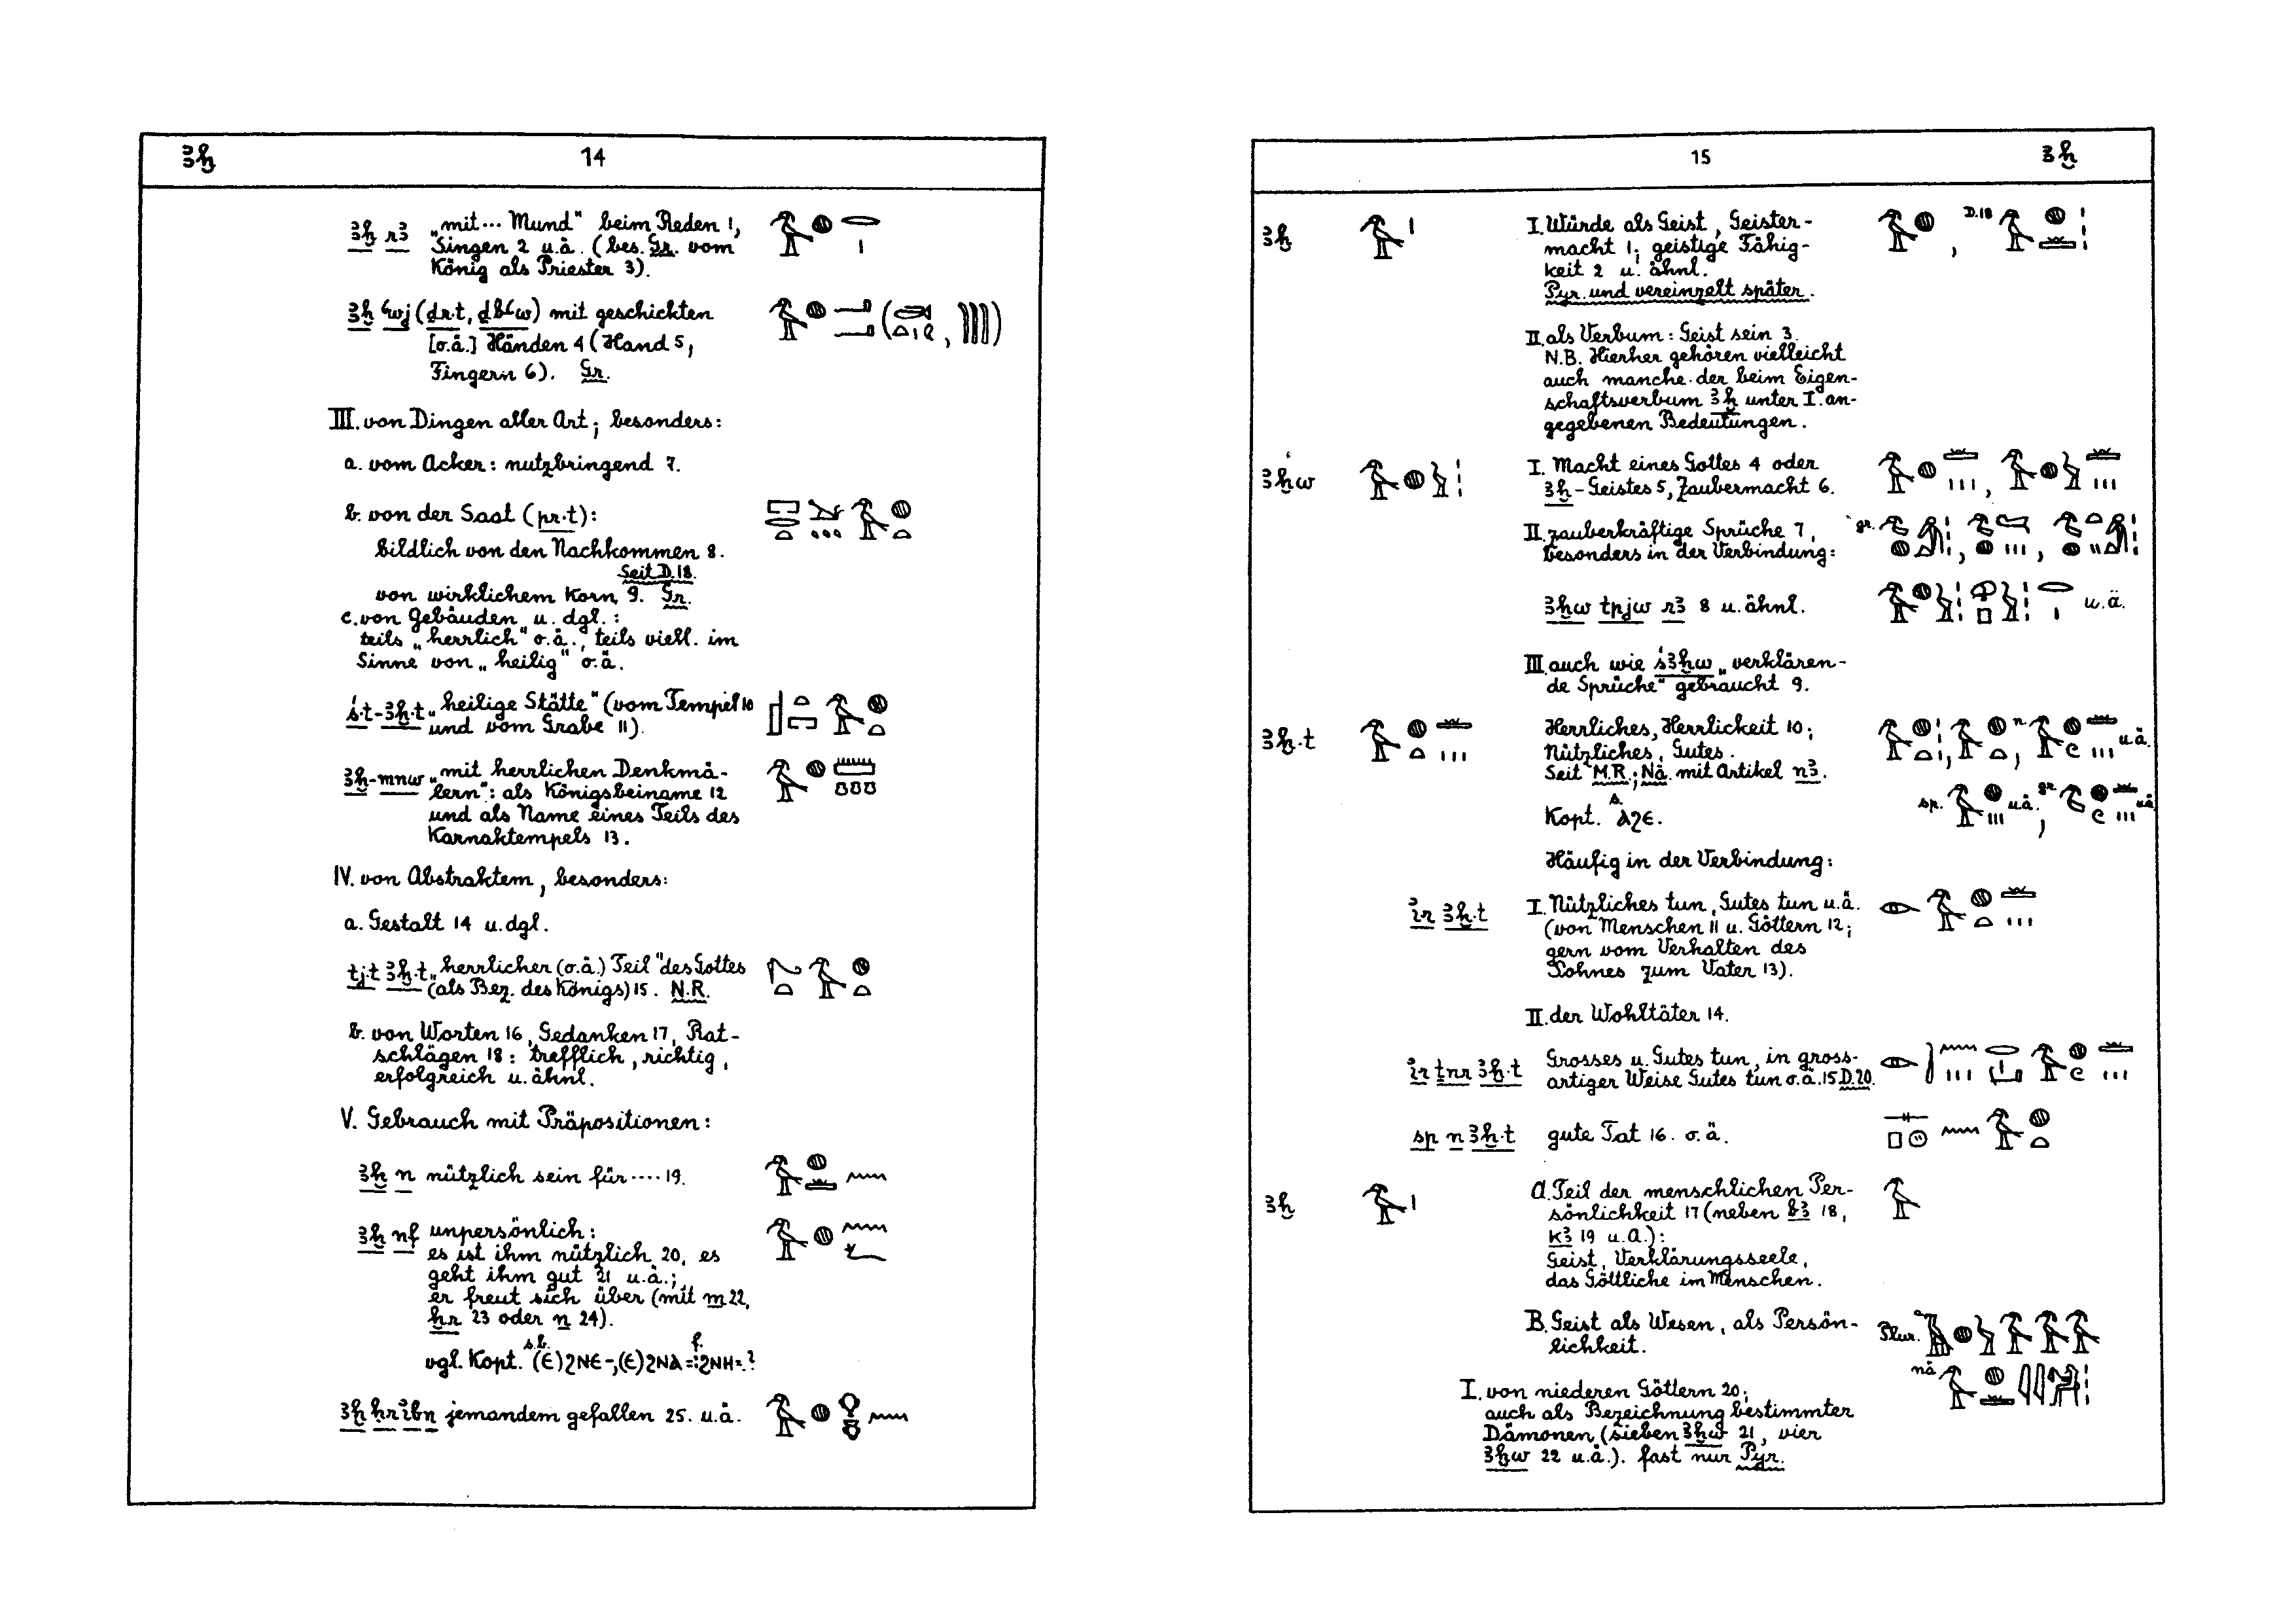 ꜣḫ 14
ꜣḫ rꜣ „mit... Mund" beim Reden 1,
Singen 2 u.ä. (bes. Gr. vom
König als Priester 3).
ꜣḫ ꜥwj (ḏr.t, ḏbꜥw) mit geschickten
[o.ä.] Händen 4 (Hand 5,
Fingern 6). Gr.
III. von Dingen aller Art; besonders:
a. vom Acker: nutzbringend 7.
b. von der Saat (pr.t):
bildlich von den Nachkommen 8.
Seit D.18.
von wirklichem Korn 9. Gr.
c. von Gebäuden u. dgl.:
teils „herrlich" o.ä., teils viell. im
Sinne von „heilig" o.ä.
ś.t-ꜣḫ.t „heilige Stätte" (vom Tempel 10
und vom Grabe 11).
ꜣḫ-mnw „mit herrlichen Denkmä-
lern": als Königsbeiname 12
und als Name eines Teils des
Karnaktempels 13.
IV. von Abstraktem, besonders:
a. Gestalt 14 u. dgl.
tj.t ꜣḫ.t „herrlicher (o.ä.) Teil" des Gottes
(als Bez. des Königs) 15. N.R.
b. von Worten 16, Gedanken 17, Rat-
schlägen 18: trefflich, richtig,
erfolgreich u. ähnl.
V. Gebrauch mit Präpositionen:
ꜣḫ n nützlich sein für .... 19.
ꜣḫ nf unpersönlich:
es ist ihm nützlich 20, es
geht ihm gut 21 u.ä.;
er freut sich über (mit m 22,
ḥr 23 oder n 24).
vgl. Kopt. s.b. (ⲉ)ϩⲛⲉ-, (ⲉ)ϩⲛⲁ=: f. ϩⲛⲏ=?
ꜣḫ ḥr ἰb n jemandem gefallen 25. u.ä.
15 ꜣḫ
ꜣḫ I. Würde als Geist, Geister-
macht 1; geistige Fähig-
keit 2 u. ähnl.
Pyr. und vereinzelt später.
D.18
II. als Verbum: Geist sein 3.
N.B. Hierher gehören vielleicht
auch manche der beim Eigen-
schaftsverbum ꜣḫ unter I. an-
gegebenen Bedeutungen.
ꜣḫw I. Macht eines Gottes 4 oder
ꜣḫ-Geistes 5, Zaubermacht 6.
II. zauberkräftige Sprüche 7, gr.
besonders in der Verbindung:
ꜣḫw tpjw rꜣ 8 u. ähnl. u.ä.
III. auch wie śꜣḫw „verklären-
de Sprüche" gebraucht 9.
ꜣḫ.t Herrliches, Herrlickeit 10; n u.ä.
Nützliches, Gutes.
Seit M.R.; Nä. mit Artikel nꜣ.
Kopt. s. ⲁϩⲉ. sp. u.ä. gr. u.ä.
Häufig in der Verbindung:
ἰr ꜣḫ.t I. Nützliches tun, Gutes tun u.ä.
(von Menschen 11 u. Göttern 12;
gern vom Verhalten des
Sohnes zum Vater 13).
II. der Wohltäter 14.
ἰr ṯnr ꜣḫ.t Grosses u. Gutes tun, in gross-
artiger Weise Gutes tun o.ä. 15 D.20.
sp n ꜣḫ.t gute Tat 16. o.ä.
ꜣḫ A. Teil der menschlichen Per-
sönlichkeit 17 (neben bꜣ 18,
kꜣ 19 u.a.):
Geist, Verklärungsseele,
das Göttliche im Menschen.
B. Geist als Wesen, als Persön- Plur. a
lichkeit.
nä
I. von niederen Göttern 20;
auch als Bezeichnung bestimmter
Dämonen (sieben ꜣḫw 21, vier
ꜣḫw 22 u.ä.). fast nur Pyr.